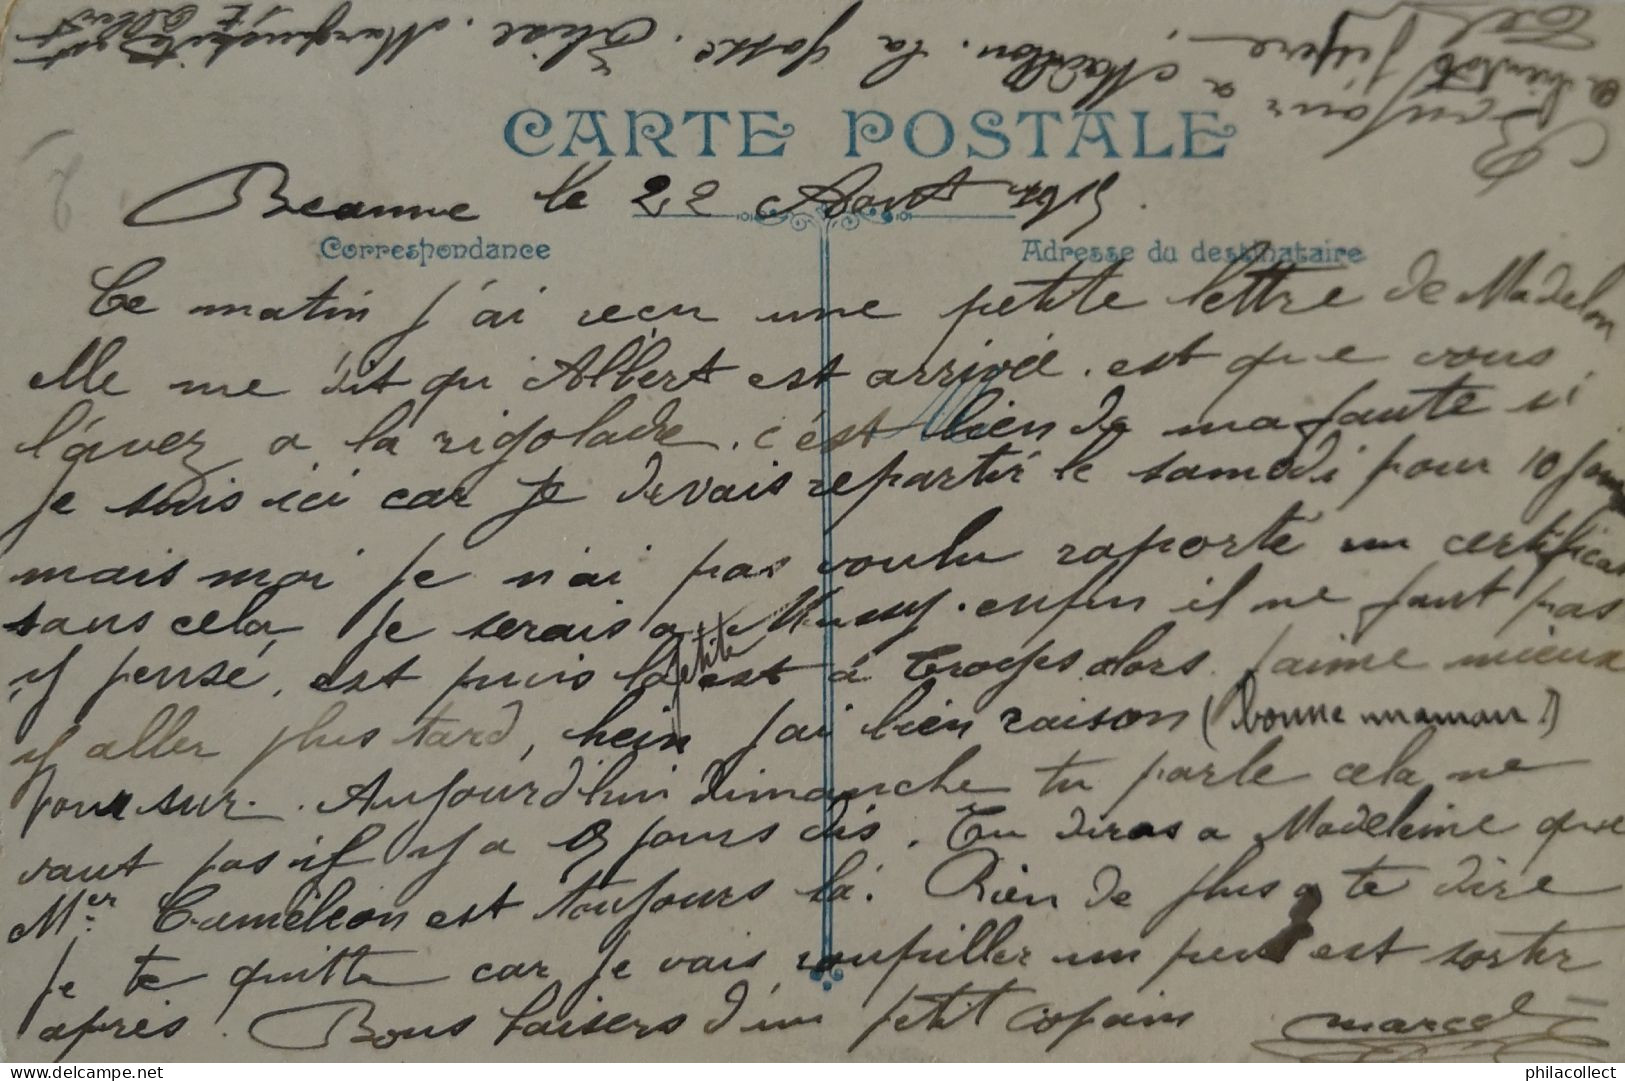 CARTE POSTALE
Beaune le 22 Août
Correspondance
Adresse du destinataire
Ce matin j'ai reçu une petite lettre de Madelon
elle me dit qu'Albert est arrivée. est que vous
l'avez a la rigolade. c'est bien de ma faute si
je suis ici car je devais repartir le samedi pour 10 jours
mais moi je n'ai pas voulu raporté un certificat
sans cela je serais a enfin il ne faut pas
y pensé, est puis la petite est à Troyes alors j'aime mieux
y aller plus tard, hein j'ai bien raison (bonne maman!)
pour sur. Aujourd'hui dimanche tu parle cela ne
vaut pas il y a 8 jours dis. Tu diras a Madeleine que
Mer Caméléon est toujours là. Rien de plus a te dire
je te quitte car je vais roupiller un peu est sortir
après. Bons baisers d'un petit copain Marcel
Bonjour a Madelon. la Gosse. Marguerite
Albert
a bientôt j'espère
philacollect